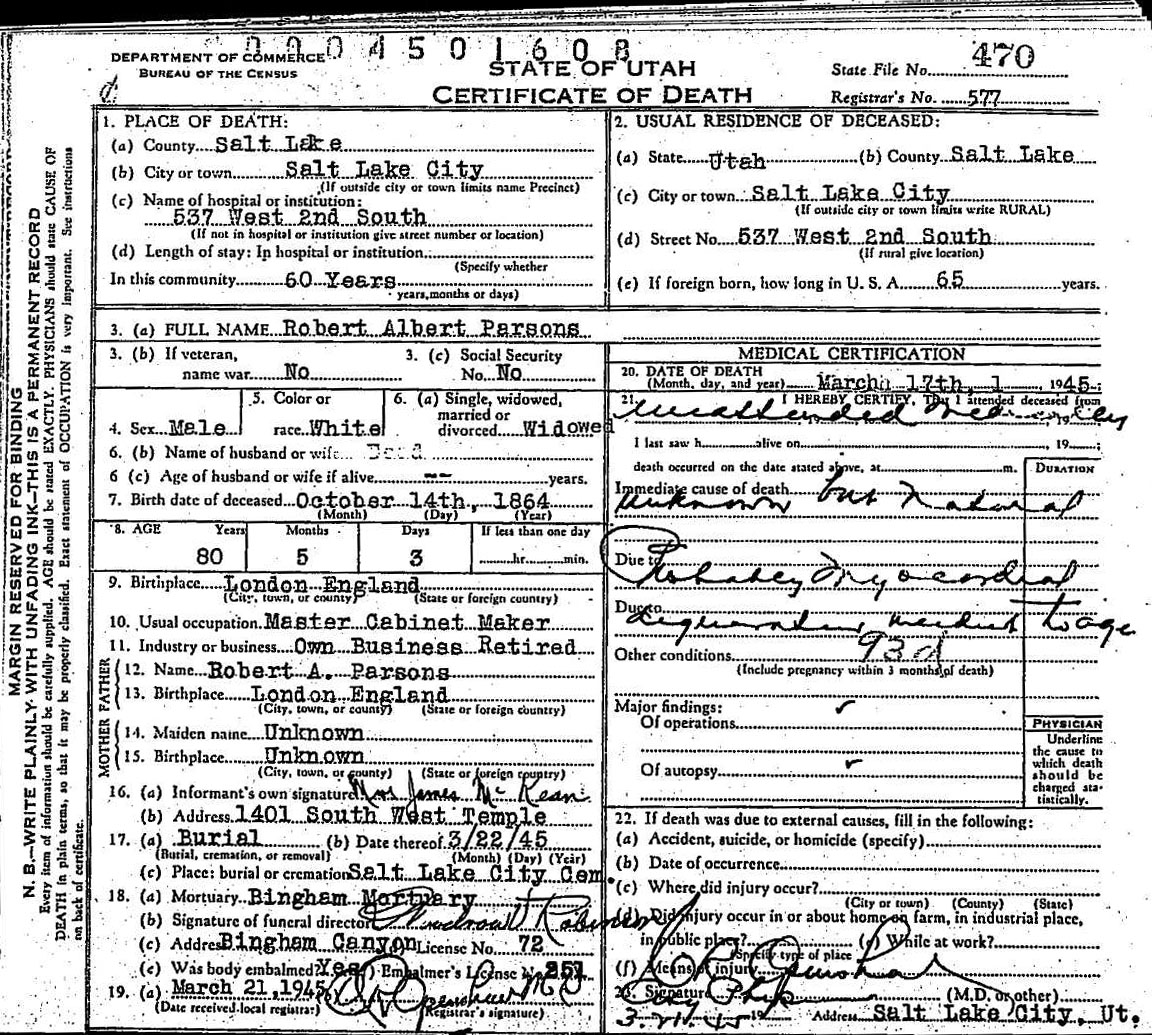 0004501608
DEPARTMENT OF COMMERCE
BUREAU OF THE CENSUS
STATE OF UTAH
CERTIFICATE OF DEATH
State File No. 470
Registrar's No. 577
MARGIN RESERVED FOR BINDING
N. B.—WRITE PLAINLY WITH UNFADING INK—THIS IS A PERMANENT RECORD
Every item of information should be carefully supplied. AGE should be stated EXACTLY. PHYSICIANS should state CAUSE OF
DEATH in plain terms, so that it may be properly classified. Exact statement of OCCUPATION is very important. See instructions
on back of certificate.
1. PLACE OF DEATH:
(a) County Salt Lake
(b) City or town Salt Lake City
(If outside city or town limits name Precinct)
(c) Name of hospital or institution:
537 West 2nd South
(If not in hospital or institution give street number or location)
(d) Length of stay: In hospital or institution
(Specify whether
In this community 60 Years
years, months or days)
2. USUAL RESIDENCE OF DECEASED:
(a) State Utah (b) County Salt Lake
(c) City or town Salt Lake City
(If outside city or town limits write RURAL)
(d) Street No. 537 West 2nd South
(If rural give location)
(e) If foreign born, how long in U. S. A. 65 years.
3. (a) FULL NAME Robert Albert Parsons
3. (b) If veteran, name war No
3. (c) Social Security No. No
4. Sex Male
5. Color or race White
6. (a) Single, widowed, married or divorced Widowed
6. (b) Name of husband or wife Dead
6 (c) Age of husband or wife if alive -- years.
7. Birth date of deceased October 14th, 1864
(Month) (Day) (Year)
8. AGE Years Months Days If less than one day
80 5 3 hr. min.
9. Birthplace London England
(City, town, or county) (State or foreign country)
10. Usual occupation Master Cabinet Maker
11. Industry or business Own Business Retired
FATHER
12. Name Robert A. Parsons
13. Birthplace London England
(City, town, or county) (State or foreign country)
MOTHER
14. Maiden name Unknown
15. Birthplace Unknown
(City, town, or county) (State or foreign country)
16. (a) Informant's own signature Mrs James McKean
(b) Address 1401 South West Temple
17. (a) Burial (b) Date thereof 3/22/45
(Burial, cremation, or removal) (Month) (Day) (Year)
(c) Place: burial or cremation Salt Lake City Cem.
18. (a) Mortuary Bingham Mortuary
(b) Signature of funeral director
(c) Address Bingham Canyon License No. 72
(e) Was body embalmed? Yes Embalmer's License No. 251
19. (a) March 21, 1945
(Date received local registrar) (Registrar's signature)
MEDICAL CERTIFICATION
20. DATE OF DEATH
(Month, day, and year) March 17th, 1945
21. I HEREBY CERTIFY, That I attended deceased from
Unattended Medically 19
I last saw h alive on 19
death occurred on the date stated above, at m.
DURATION
Immediate cause of death
unknown but Natural
Due to
Probably Myocardial
Due to
degeneration incident to age
Other conditions 93d
(Include pregnancy within 3 months of death)
Major findings:
Of operations
Of autopsy
PHYSICIAN
Underline
the cause to
which death
should be
charged sta-
tistically.
22. If death was due to external causes, fill in the following:
(a) Accident, suicide, or homicide (specify)
(b) Date of occurrence
(c) Where did injury occur?
(City or town) (County) (State)
(d) Did injury occur in or about home on farm, in industrial place,
in public place? (e) While at work?
(Specify type of place
(f) Means of injury
23. Signature (M.D. or other)
Address Salt Lake City, Ut.